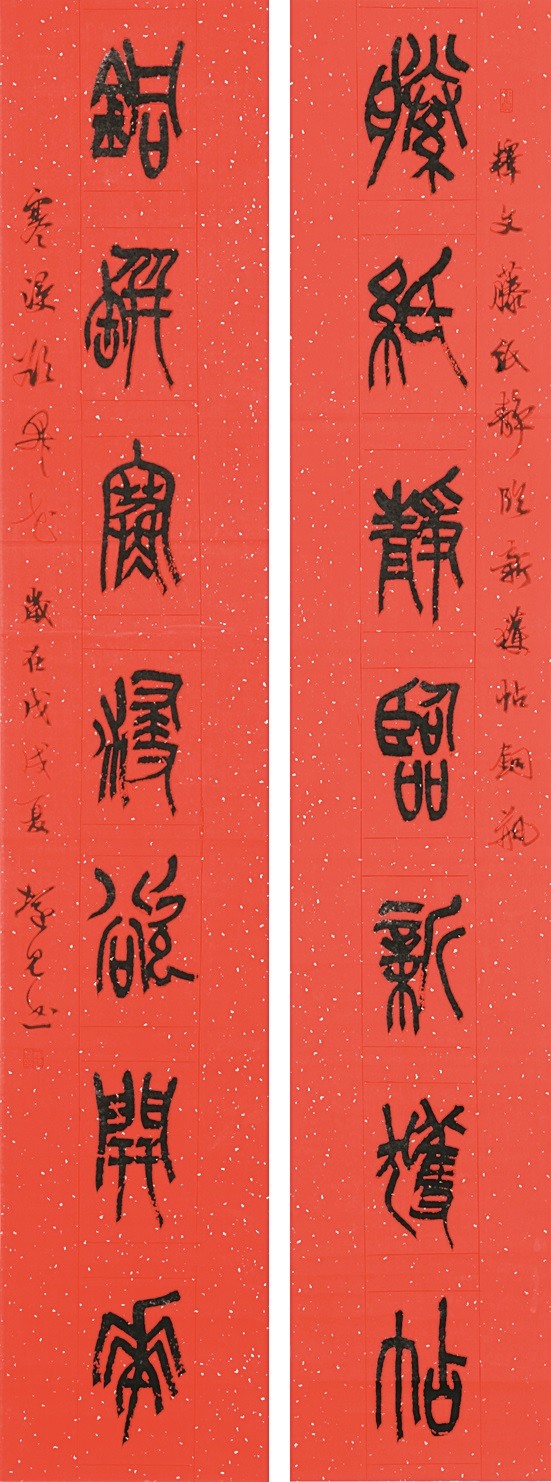 釋文藤紙靜臨新獲帖銅瓶
藤紙靜臨新獲帖
銅瓶寒浸欲開花
寒浸欲開花 歲在戊戌夏